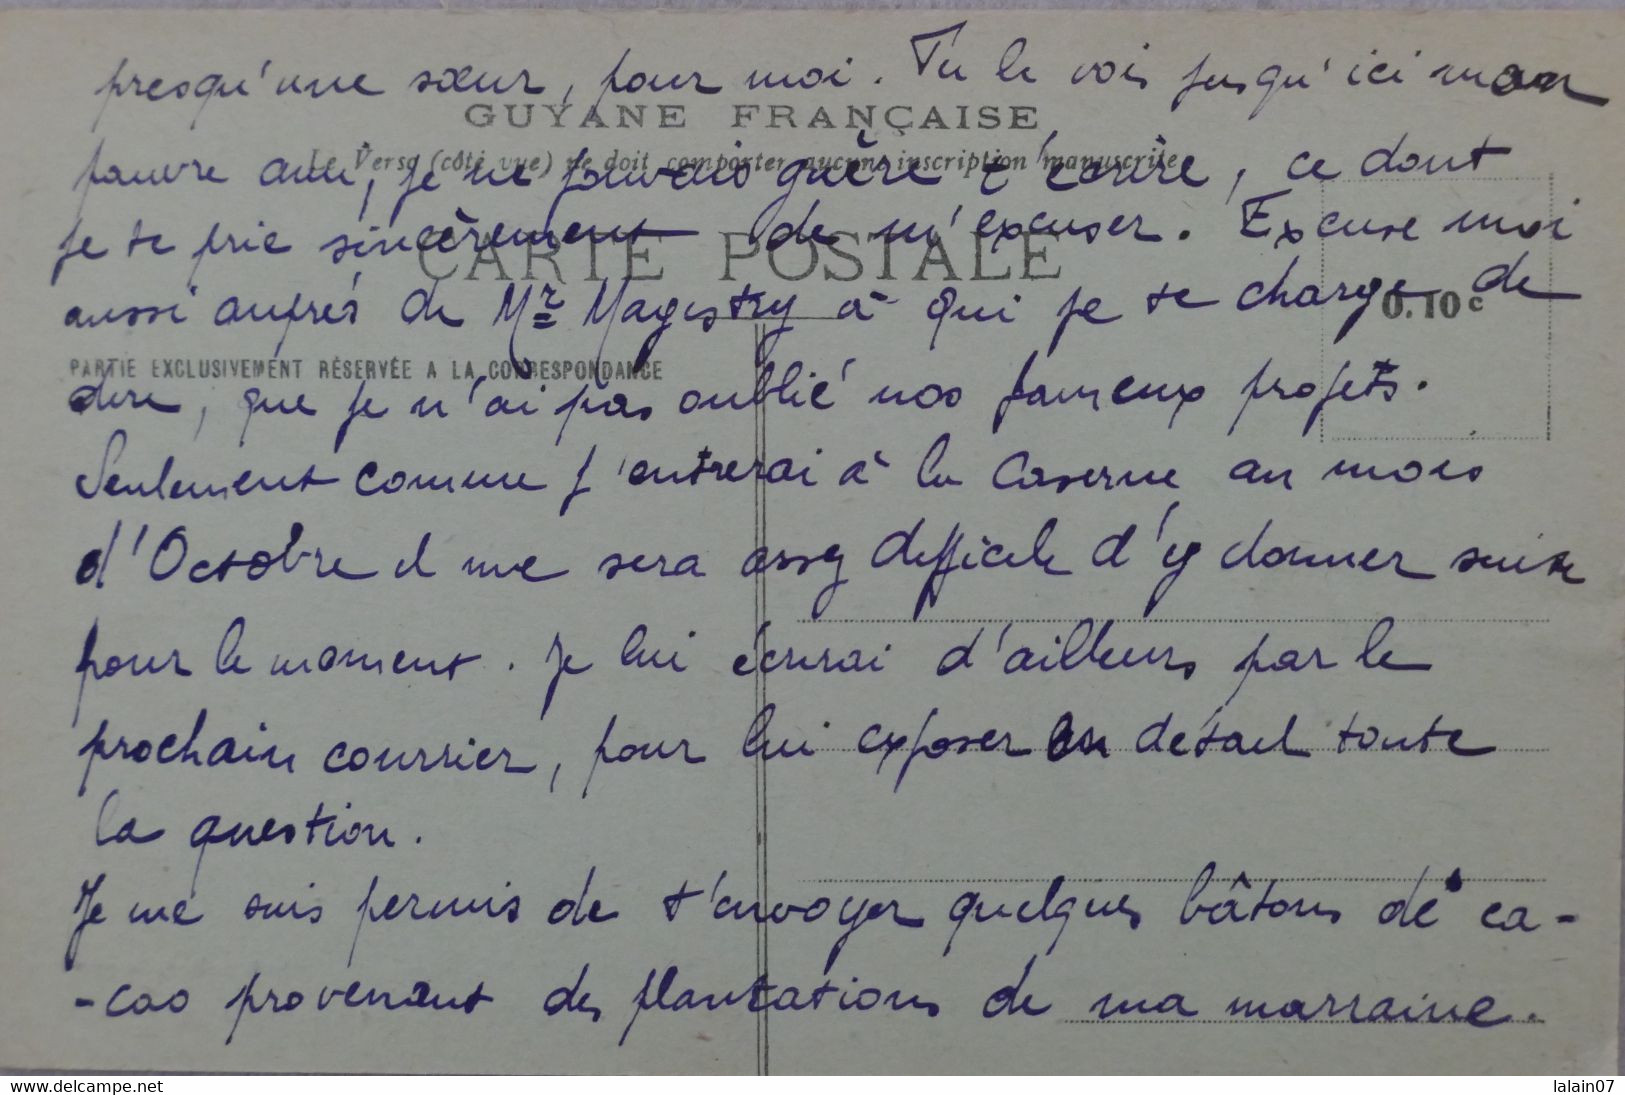 presqu'une sœur, pour moi. Tu le vois jusqu'ici mon
GUYANE FRANÇAISE
Le Verso (côté vue) ne doit comporter aucune inscription manuscrite
pauvre ami, je ne pouvais guère t'écrire, ce dont
je te prie sincèrement de m'excuser. Excuse moi
CARTE POSTALE
aussi auprès de Mr Magistry à qui je te charge de
0.10 c
PARTIE EXCLUSIVEMENT RÉSERVÉE A LA CORRESPONDANCE
dire, que je n'ai pas oublié nos fameux projets.
Seulement comme j'entrerai à la Caserne au mois
d'Octobre il me sera assez difficile d'y donner suite
pour le moment. Je lui écrirai d'ailleurs par le
prochain courrier, pour lui exposer en détail toute
la question.
Je me suis permis de t'envoyer quelques bâtons de ca-
-cao provenant des plantations de ma marraine.
www.delcampe.net
lalain07